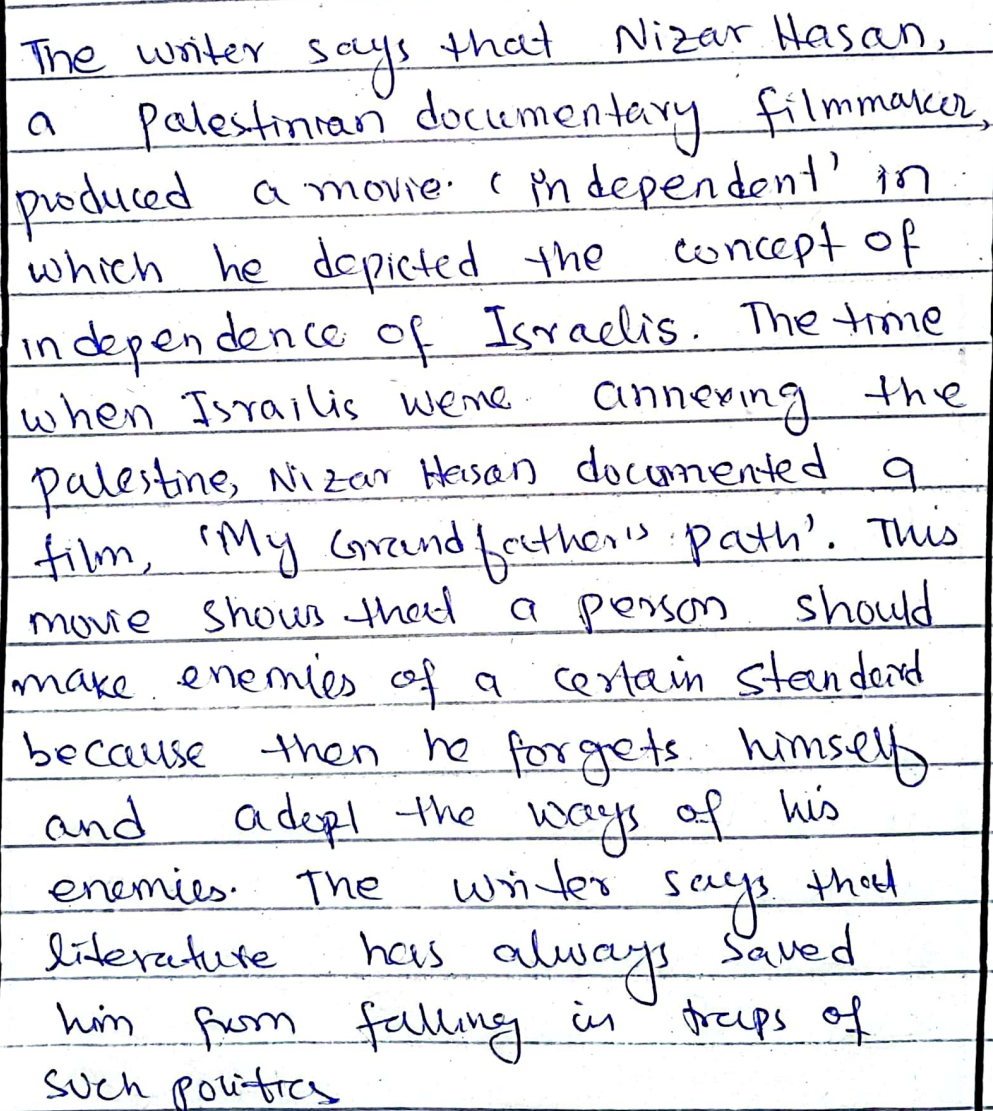 The writer says that Nizar Hasan,
a Palestinian documentary filmmaker,
produced a movie. 'independent' in
which he depicted the concept of
independence of Israelis. The time
when Israilis were annexing the
palestine, Nizar Hasan documented a
film, 'My Grandfather's path'. This
movie shows that a person should
make enemies of a certain standard
because then he forgets himself
and adept the ways of his
enemies. The writer says that
literature has always saved
him from falling in traps of
such politics